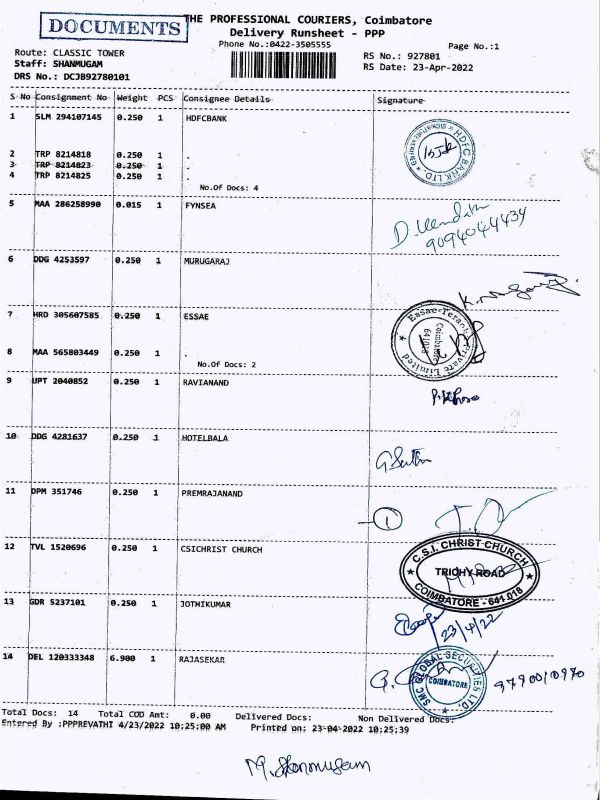 DOCUMENTS
THE PROFESSIONAL COURIERS, Coimbatore
Delivery Runsheet - PPP
Phone No.:0422-3505555
Page No.:1
Route: CLASSIC TOWER
Staff: SHANMUGAM
DRS No.: DCJB92780101
RS No.: 927801
RS Date: 23-Apr-2022
S No Consignment No Weight PCS Consignee Details Signature
1 SLM 294107145 0.250 1 HDFCBANK
HDFC BANK LTD
2 TRP 8214818 0.250 1 .
3 TRP 8214823 0.250 1 .
4 TRP 8214825 0.250 1 .
No.Of Docs: 4
5 MAA 286258990 0.015 1 FYNSEA
9094044434
6 DDG 4253597 0.250 1 MURUGARAJ
7 HRD 305607585 0.250 1 ESSAE
Private Limited
Coimbatore
8 MAA 565803449 0.250 1 .
No.Of Docs: 2
9 UPT 2040852 0.250 1 RAVIANAND
10 DDG 4281637 0.250 1 HOTELBALA
11 DPM 351746 0.250 1 PREMRAJANAND
1
12 TVL 1520696 0.250 1 CSICHRIST CHURCH
C.S.I. CHRIST CHURCH
TRICHY ROAD
COIMBATORE - 641 018
13 GDR 5237101 0.250 1 JOTHIKUMAR
23/4/22
14 DEL 120333348 6.900 1 RAJASEKAR
SMC GLOBAL SECURITIES LTD.
COIMBATORE
9790010970
Total Docs: 14 Total COD Amt: 0.00 Delivered Docs: Non Delivered Docs:
Entered By :PPPREVATHI 4/23/2022 10:25:00 AM Printed on: 23-04-2022 10:25:39
M. Shanmugam